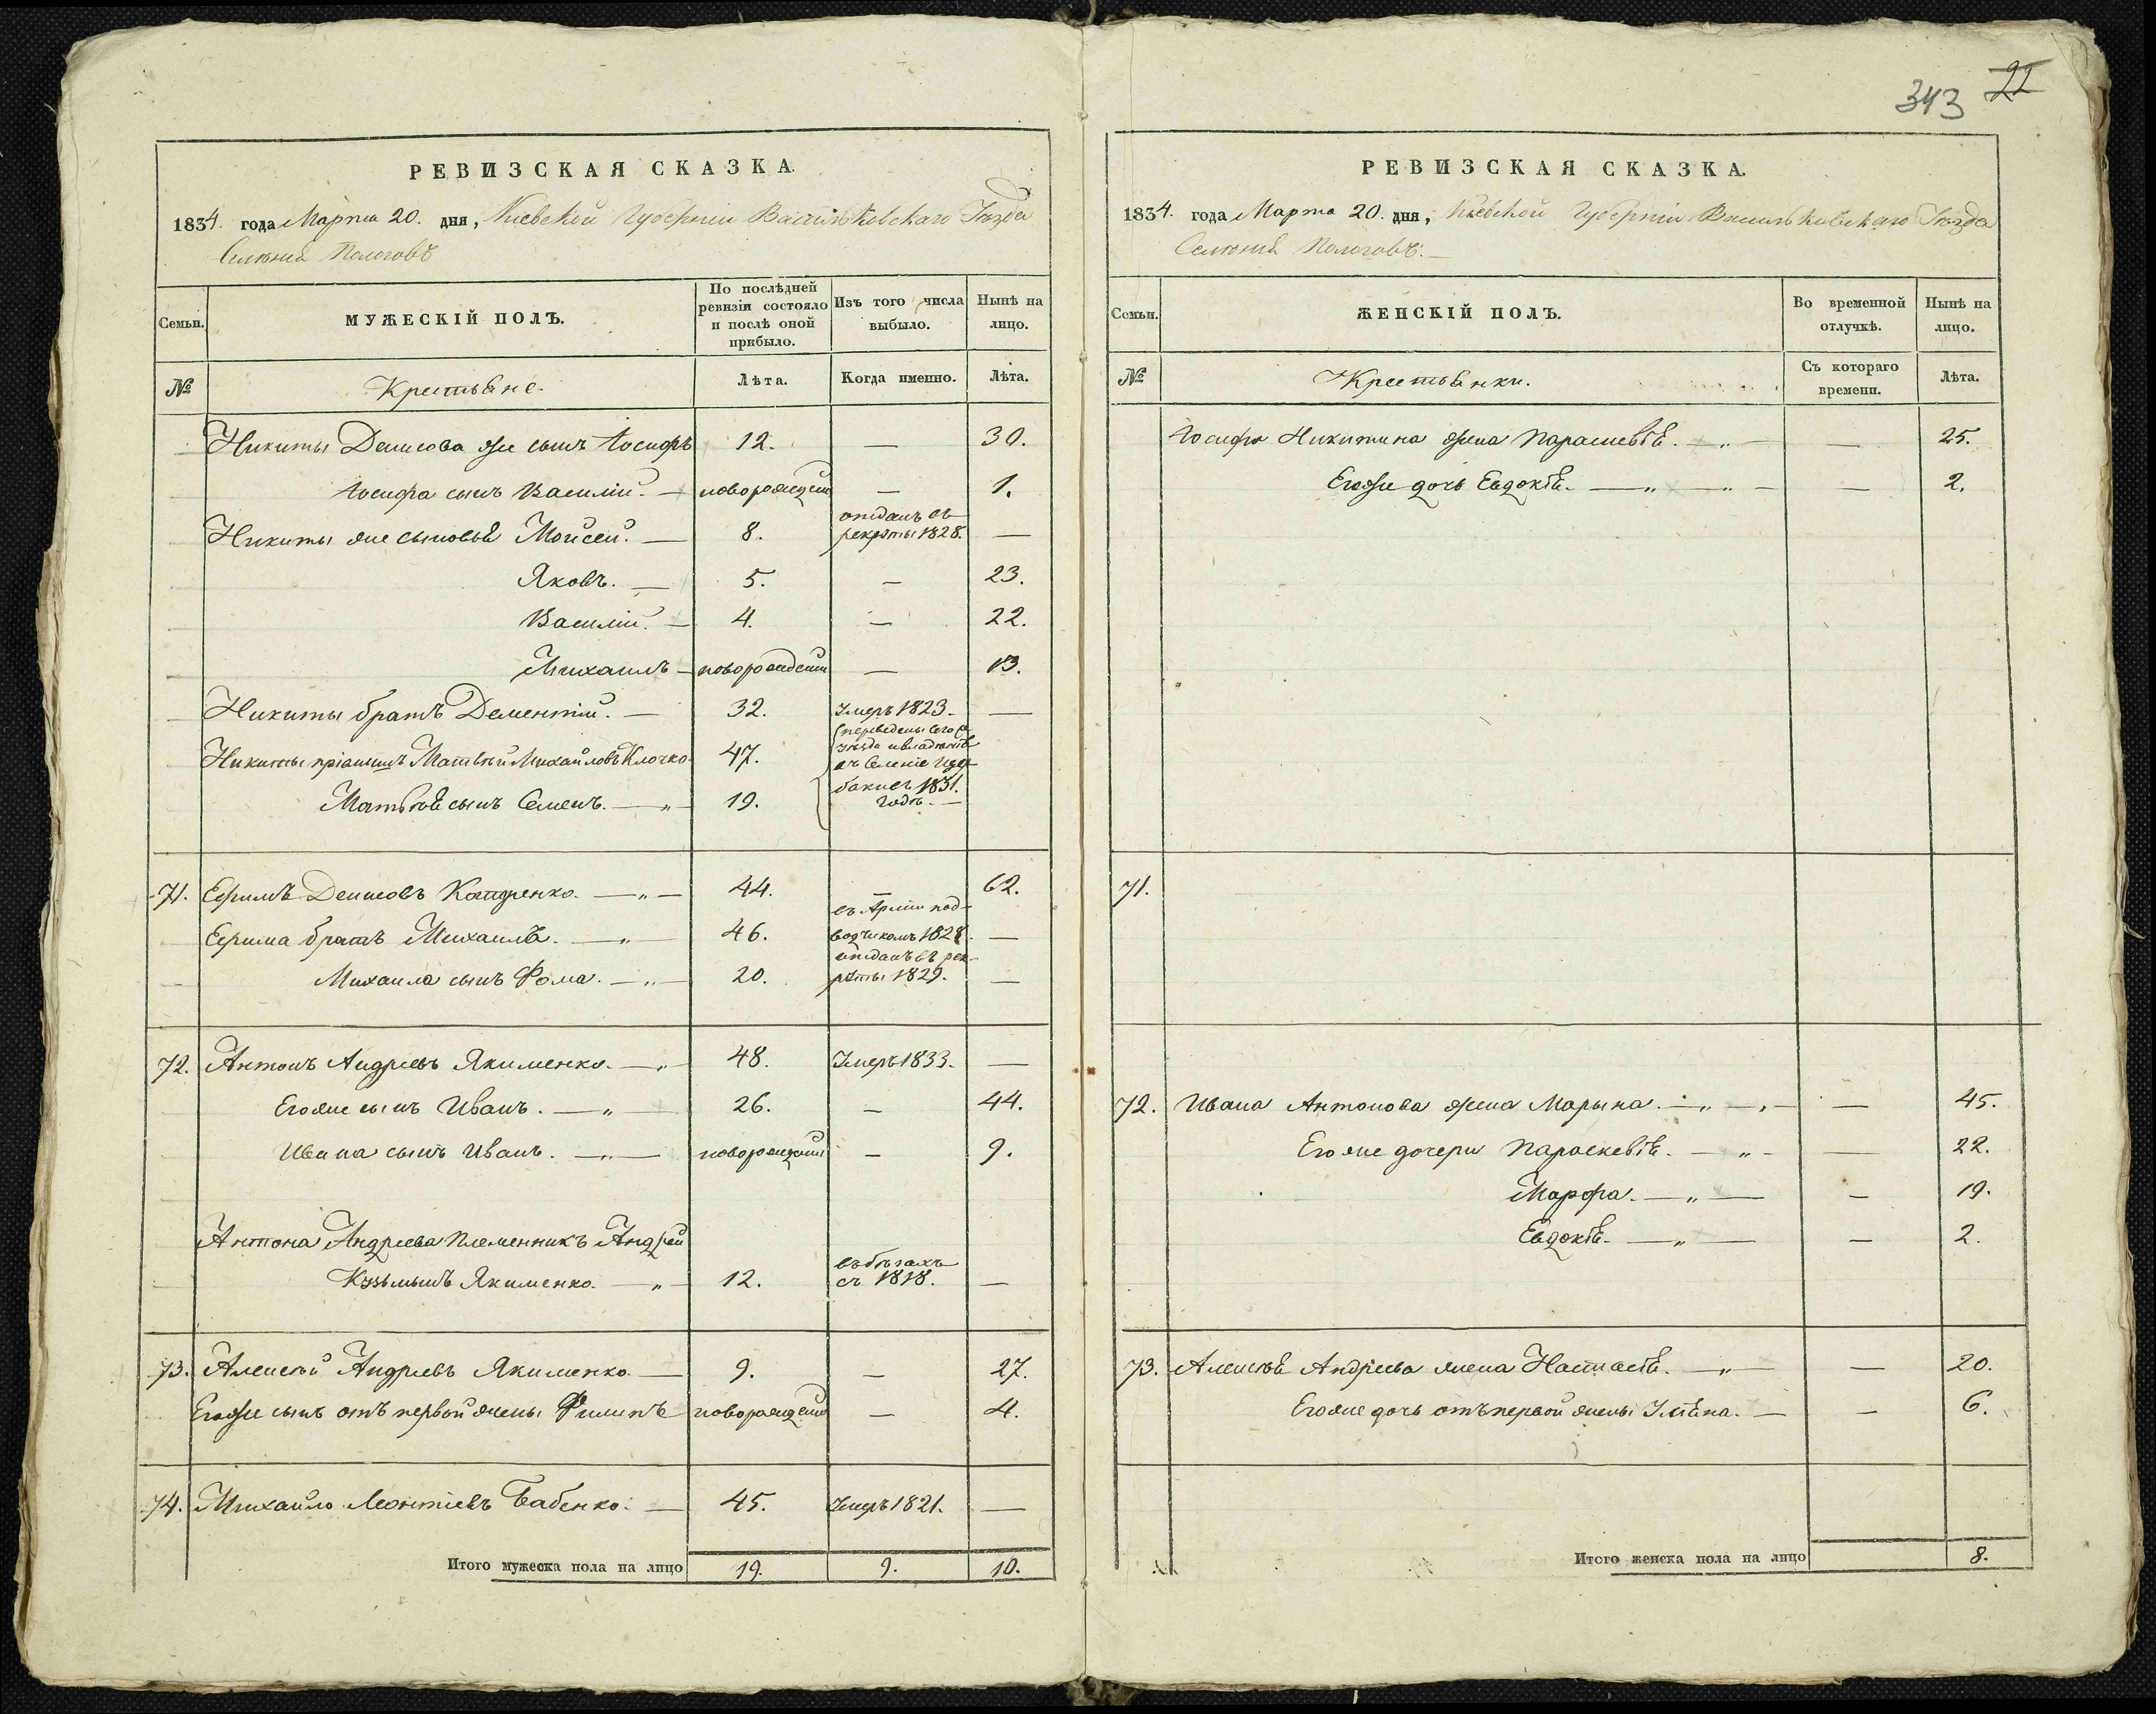 343 22
РЕВИЗСКАЯ СКАЗКА.
1834. года Марта 20. дня, Кіевской Губерніи Васильковскаго Уѣзда
Селенія Пологовъ
Семьи.
МУЖЕСКІЙ ПОЛЪ.
По послѣдней ревизіи состояло и послѣ оной прибыло.
Изъ того числа выбыло.
Нынѣ на лицо.
№ Крестьяне. Лѣта. Когда именно. Лѣта.
Никиты Денисова же сынъ Іосифъ 12. — 30.
Іосифа сынъ Василій. — новорожден — 1.
Никиты же сыновья Мойсей. — 8. отданъ въ рекруты 1828. —
Яковъ. — 5. — 23.
Василій. — 4. — 22.
Михаилъ — новорожден — 13.
Никиты братъ Дементій. — 32. Умеръ 1823. —
Никиты пріймышъ Матвѣй Михайловъ Клочко 47.
Матвѣя сынъ Семенъ. — „ — 19.
переведены сего уѣзда и владѣнія въ Селеніе 1831. годѣ. —
71. Ефимъ Денисовъ Кондренко. — „ — 44. — 62.
Ефима братъ Михаилъ. — „ — 46. въ Арміи подводчикомъ 1828. —
Михаила сынъ Фома. — „ — 20. отданъ въ рекруты 1829. —
72. Антонъ Андреевъ Якименко. — „ — 48. Умеръ 1833. —
Егоже сынъ Иванъ. — „ — 26. — 44.
Ивана сынъ Иванъ. — „ — новорожденый — 9.
Антона Андреева племенникъ Андрей
Кузьминъ Якименко. — „ — 12. въ бѣгахъ съ 1818. —
73. Алексѣй Андреевъ Якименко. — 9. — 27.
Егоже сынъ отъ первой жены Филипъ новорожденый — 4.
74. Михайло Леонтіевъ Бабенко. — 45. Умеръ 1821. —
Итого мужеска пола на лицо 19. 9. 10.
РЕВИЗСКАЯ СКАЗКА.
1834. года Марта 20. дня, Кіевской Губерніи Васильковскаго Уѣзда
Селенія Пологовъ. —
Семьи.
ЖЕНСКІЙ ПОЛЪ.
Во временной отлучкѣ.
Нынѣ на лицо.
№ Крестьянки. Съ котораго времени. Лѣта.
Іосифа Никитина жена Параскевія. — „ — — 25.
Егоже дочь Евдокія. — „ — „ — — 2.
71.
72. Ивана Антонова жена Марына. — „ — „ — — 45.
Егоже дочери Параскевія. — „ — — 22.
Марфа. — „ — — 19.
Евдокія. — „ — — 2.
73. Алексѣя Андреева жена Настасія. — „ — — 20.
Егоже дочь отъ первой жены Уліяна. — — 6.
Итого женска пола на лицо 8.